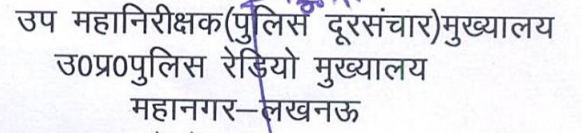 उप महानिरीक्षक(पुलिस दूरसंचार)मुख्यालय
उ0प्र0पुलिस रेडियो मुख्यालय
महानगर–लखनऊ